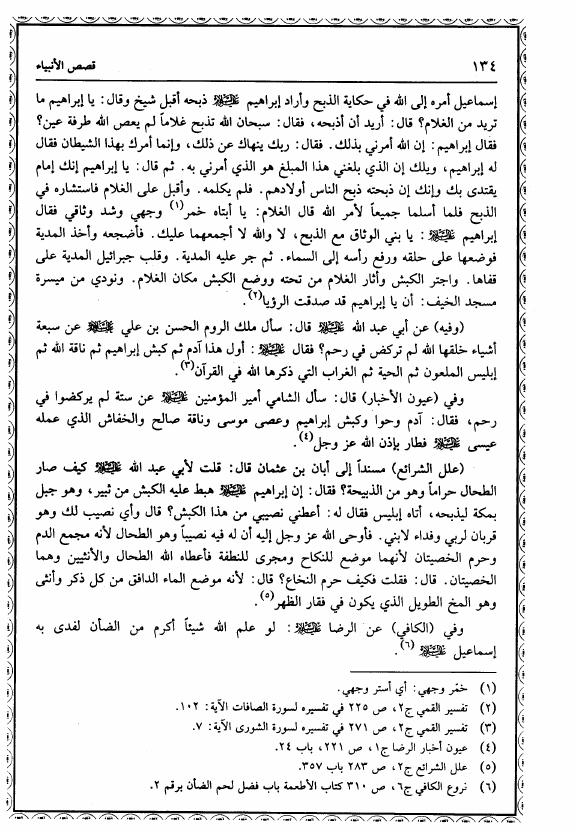 ١٣٤
قصص الأنبياء
إسماعيل أمره إلى الله في حكاية الذبح وأراد إبراهيم ﷺ ذبحه أقبل شيخ وقال: يا إبراهيم ما
تريد من الغلام؟ قال: أريد أن أذبحه، فقال: سبحان الله تذبح غلاماً لم يعص الله طرفة عين؟
فقال إبراهيم: إن الله أمرني بذلك. فقال: ربك ينهاك عن ذلك، وإنما أمرك بهذا الشيطان فقال
له إبراهيم، ويلك إن الذي بلغني هذا المبلغ هو الذي أمرني به. ثم قال: يا إبراهيم إنك إمام
يقتدى بك وإنك إن ذبحته ذبح الناس أولادهم. فلم يكلمه. وأقبل على الغلام فاستشاره في
الذبح فلما أسلما جميعاً لأمر الله قال الغلام: يا أبتاه خمر(١) وجهي وشد وثاقي فقال
إبراهيم ﷺ: يا بني الوثاق مع الذبح، لا والله لا أجمعهما عليك. فأضجعه وأخذ المدية
فوضعها على حلقه ورفع رأسه إلى السماء. ثم جر عليه المدية. وقلب جبرائيل المدية على
قفاها. واجتر الكبش وأثار الغلام من تحته ووضع الكبش مكان الغلام. ونودي من ميسرة
مسجد الخيف: أن يا إبراهيم قد صدقت الرؤيا(٢).
(وفيه) عن أبي عبد الله ﷺ قال: سأل ملك الروم الحسن بن علي ﷺ عن سبعة
أشياء خلقها الله لم تركض في رحم؟ فقال ﷺ: أول هذا آدم ثم كبش إبراهيم ثم ناقة الله ثم
إبليس الملعون ثم الحية ثم الغراب التي ذكرها الله في القرآن(٣).
وفي (عيون الأخبار) قال: سأل الشامي أمير المؤمنين ﷺ عن ستة لم يركضوا في
رحم، فقال: آدم وحوا وكبش إبراهيم وعصى موسى وناقة صالح والخفاش الذي عمله
عيسى ﷺ فطار بإذن الله عز وجل(٤).
(علل الشرائع) مسنداً إلى أبان بن عثمان قال: قلت لأبي عبد الله ﷺ كيف صار
الطحال حراماً وهو من الذبيحة؟ فقال: إن إبراهيم ﷺ هبط عليه الكبش من ثبير، وهو جبل
بمكة ليذبحه، أتاه إبليس فقال له: أعطني نصيبي من هذا الكبش؟ قال وأي نصيب لك وهو
قربان لربي وفداء لابني. فأوحى الله عز وجل إليه أن له فيه نصيباً وهو الطحال لأنه مجمع الدم
وحرم الخصيتان لأنهما موضع للنكاح ومجرى للنطفة فأعطاه الله الطحال والأنثيين وهما
الخصيتان. قال: فقلت فكيف حرم النخاع؟ قال: لأنه موضع الماء الدافق من كل ذكر وأنثى
وهو المخ الطويل الذي يكون في فقار الظهر(٥).
وفي (الكافي) عن الرضا ﷺ: لو علم الله شيئاً أكرم من الضأن لفدى به
إسماعيل ﷺ(٦).
(١) خمّر وجهي: أي أستر وجهي.
(٢) تفسير القمي ج٢، ص ٢٢٥ في تفسيره لسورة الصافات الآية: ١٠٢.
(٣) تفسير القمي ج٢، ص ٢٧١ في تفسيره لسورة الشورى الآية: ٧.
(٤) عيون أخبار الرضا ج١، ص ٢٢١، باب ٢٤.
(٥) علل الشرائع ج٢، ص ٢٨٣ باب ٣٥٧.
(٦) نروع الكافي ج٦، ص ٣١٠ كتاب الأطعمة باب فضل لحم الضأن برقم ٢.